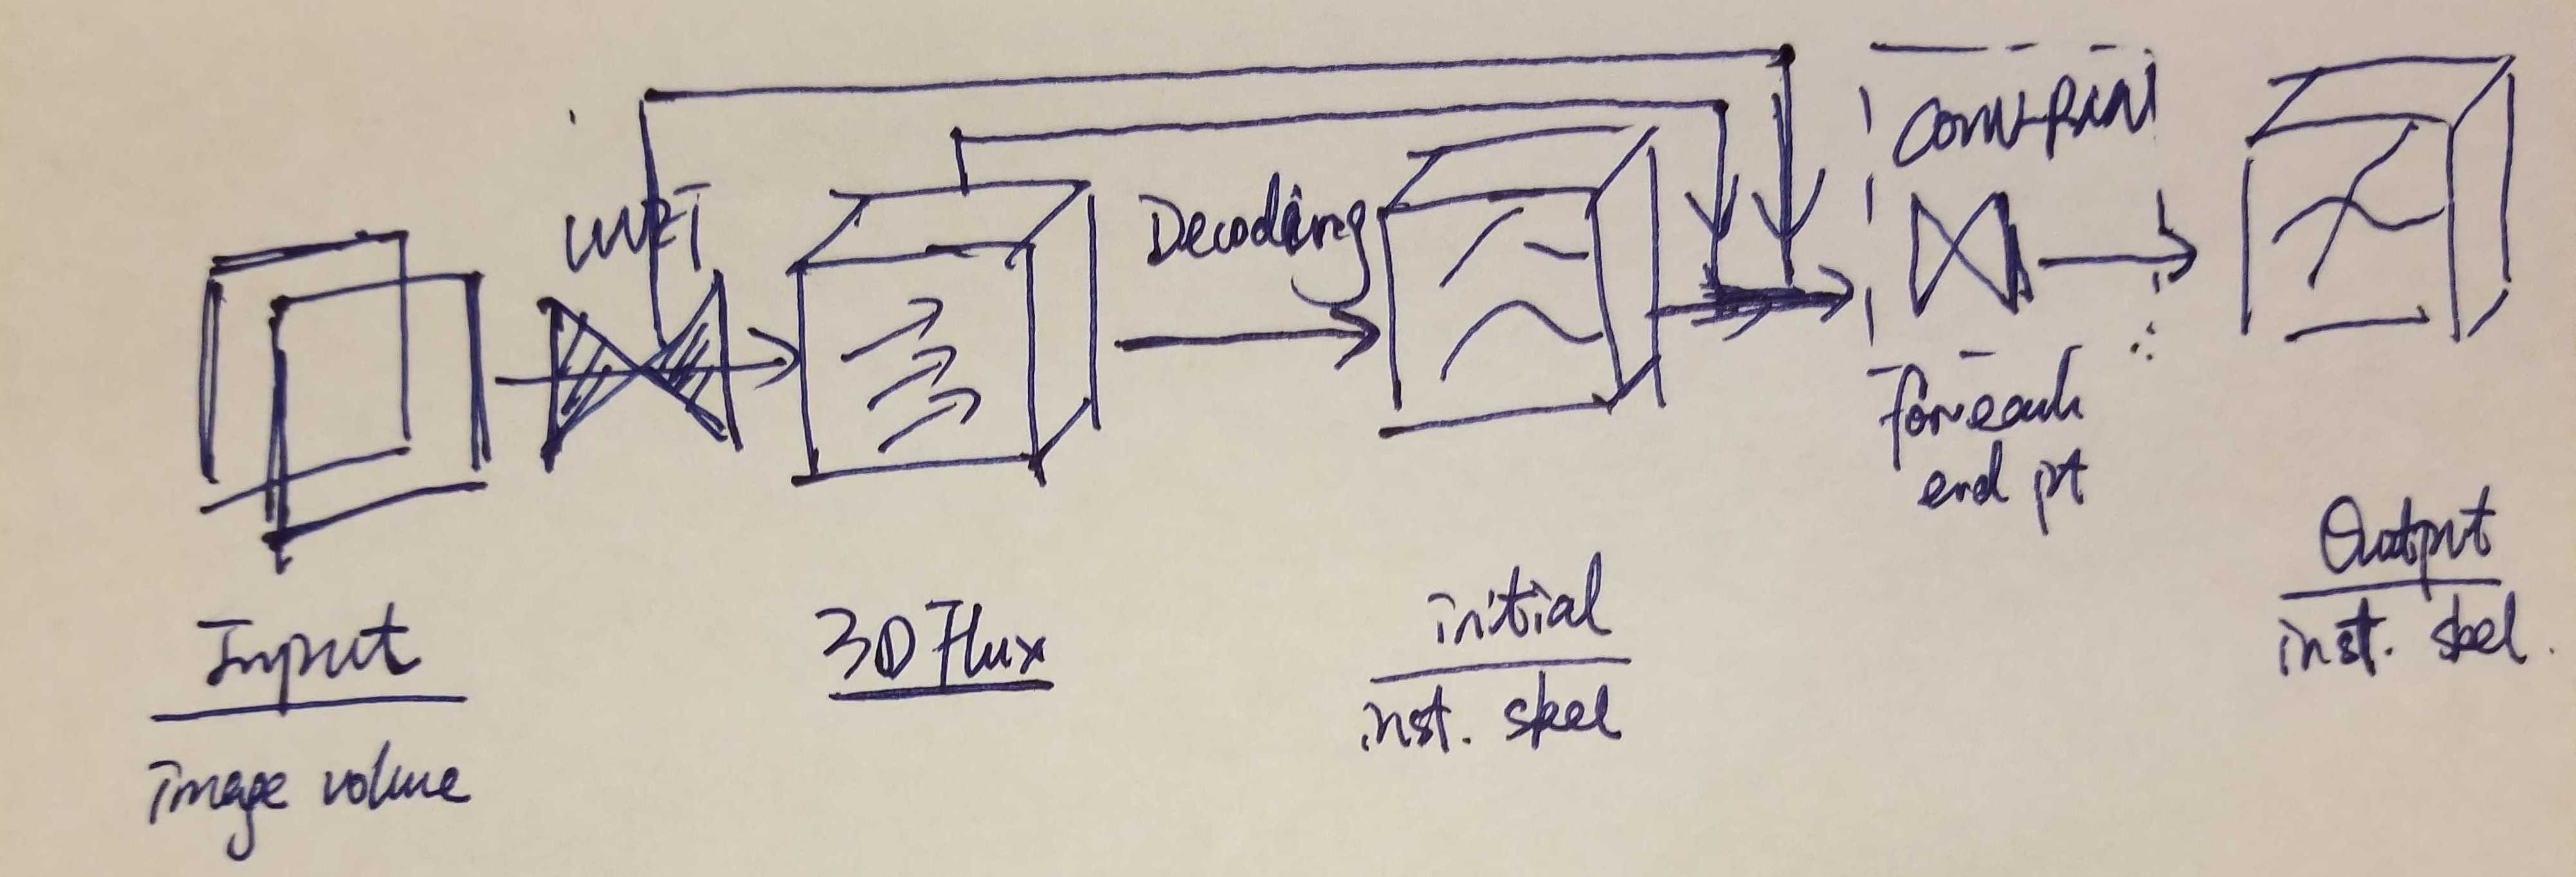 Decoding
for each
end pt
Input
image volume
3D Flux
initial
inst. skel
Output
inst. skel.